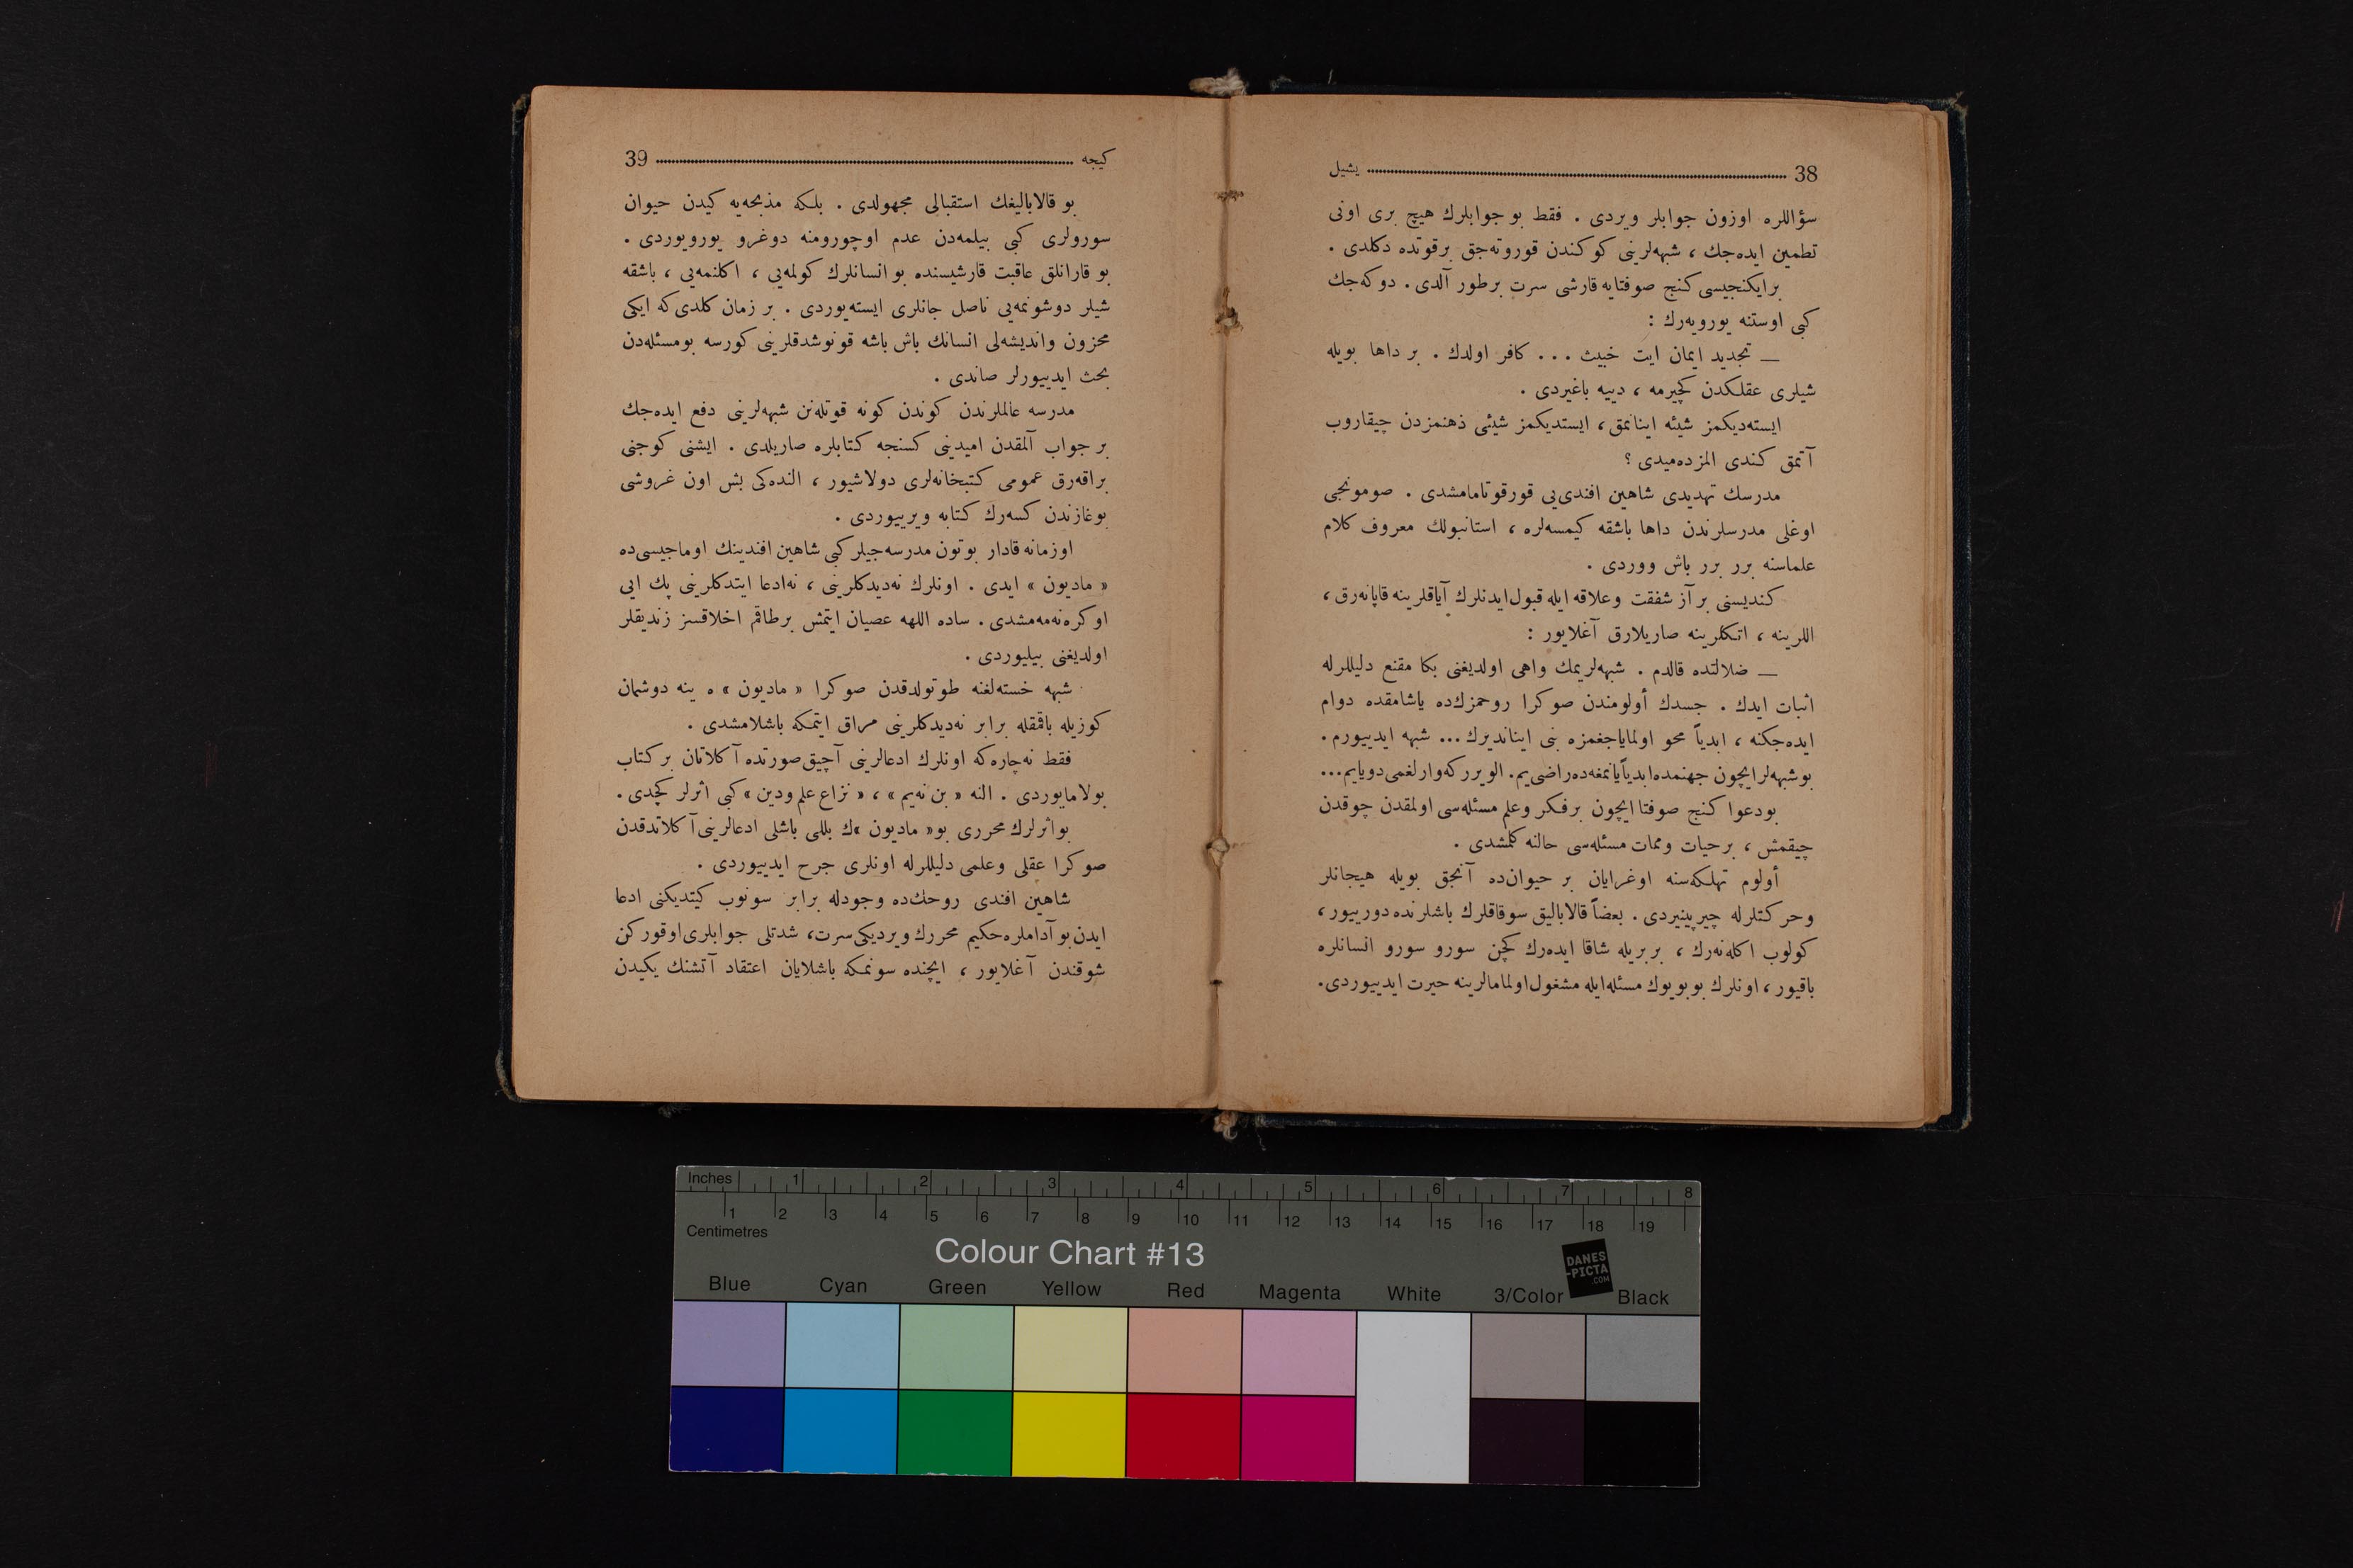 38 يشيل
سؤاللره اوزون جوابلر ويردى . فقط بو جوابلرك هيچ برى اونى
تطمين ايده‌جك ، شبهه‌لرينى كوكندن قوروته‌جق برقوتده دكلدى .
برايكنجيسى كنج صوفتايه قارشى سرت برطور آلدى . دوكه‌جك
كبى اوستنه يورويه‌رك :
— تجديد ايمان ايت خبيث ... كافر اولدك . بر داها بويله
شيلرى عقلكدن كچيرمه ، دييه باغيردى .
ايسته‌ديكمز شيئه اينانمق ، ايستديكمز شيئى ذهنمزدن چيقاروب
آتمق كندى المزده‌ميدى ؟
مدرسك تهديدى شاهين افندى‌يى قورقوتامامشدى . صومونجى
اوغلى مدرسلرندن داها باشقه كيمسه‌لره ، استانبولك معروف كلام
علماسنه برر برر باش ووردى .
كنديسنى بر آز شفقت وعلاقه ايله قبول ايدنلرك آياقلرينه قاپانه‌رق ،
اللرينه ، اتكلرينه صاريلارق آغلايور :
— ضلالتده قالدم . شبهه‌لريمك واهى اولديغنى بكا مقنع دليللرله
اثبات ايدك . جسدك أولومندن صوكرا روحمزك‌ده ياشامقده دوام
ايده‌جكنه ، ابدياً محو اولماياجغمزه بنى اينانديرك ... شبهه ايدييورم .
بوشبهه‌لرايچون جهنمده‌ابدياًيانمغه‌ده‌راضى‌يم. الويرركه‌وارلغمى‌دويايم...
بودعوا كنج صوفتا ايچون برفكر وعلم مسئله‌سى اولمقدن چوقدن
چيقمش ، برحيات وممات مسئله‌سى حالنه كلمشدى .
أولوم تهلكه‌سنه اوغرايان بر حيوان‌ده آنجق بويله هيجانلر
وحركتلرله چيرپينيردى . بعضاً قالاباليق سوقاقلرك باشلرنده دورييور ،
كولوب اكله‌نه‌رك ، بربريله شاقا ايده‌رك كچن سورو سورو انسانلره
باقيور ، اونلرك بوبويوك مسئله‌ايله مشغول‌اولمامالرينه حيرت ايدييوردى.
كيجه 39
بو قالاباليغك استقبالى مجهولدى . بلكه مذبحه‌يه كيدن حيوان
سورولرى كبى بيلمه‌دن عدم اوچورومنه دوغرو يورويوردى .
بو قارانلق عاقبت قارشيسنده بو انسانلرك كولمه‌يى ، اكلنمه‌يى ، باشقه
شيلر دوشونمه‌يى ناصل جانلرى ايسته‌يوردى . بر زمان كلدى‌كه ايكى
محزون وانديشه‌لى انسانك باش باشه قونوشدقلرينى كورسه بومسئله‌دن
بحث ايدييورلر صاندى .
مدرسه عالملرندن كوندن كونه قوتله‌نن شبهه‌لرينى دفع ايده‌جك
بر جواب آلمقدن اميدينى كسنجه كتابلره صاريلدى . ايشنى كوجنى
براقه‌رق عمومى كتبخانه‌لرى دولاشيور ، النده‌كى بش اون غروشى
بوغازندن كسه‌رك كتابه ويرييوردى .
اوزمانه قادار بوتون مدرسه‌جيلر كبى شاهين افندينك اوماجيسى‌ده
« ماديون » ايدى . اونلرك نه‌ديدكلرينى ، نه‌ادعا ايتدكلرينى پك ايى
اوكره‌نه‌مه‌مشدى . ساده اللهه عصيان ايتمش برطاقم اخلاقسز زنديقلر
اولديغنى بيليوردى .
شبهه خسته‌لغنه طوتولدقدن صوكرا « ماديون » ه ينه دوشمان
كوزيله باقمقله برابر نه‌ديدكلرينى مراق ايتمكه باشلامشدى .
فقط نه‌چاره‌كه اونلرك ادعالرينى آچيق‌صورتده آكلاتان بركتاب
بولامايوردى . النه « بن نه‌يم » ، « نزاع علم ودين » كبى اثرلر كچدى .
بواثرلرك محررى بو« ماديون »ك بللى باشلى ادعالرينى‌آكلاتدقدن
صوكرا عقلى وعلمى دليللرله اونلرى جرح ايدييوردى .
شاهين افندى روحك‌ده وجودله برابر سونوب كيتديكنى ادعا
ايدن بو آداملره حكيم محررك ويرديكى سرت، شدتلى جوابلرى‌اوقوركن
شوقندن آغلايور ، ايچنده سونمكه باشلايان اعتقاد آتشنك يكيدن
Inches 1 2 3 4 5 6 7 8
1 2 3 4 5 6 7 8 9 10 11 12 13 14 15 16 17 18 19
Centimetres
Colour Chart #13
DANES
-PICTA
.COM
Blue Cyan Green Yellow Red Magenta White 3/Color Black